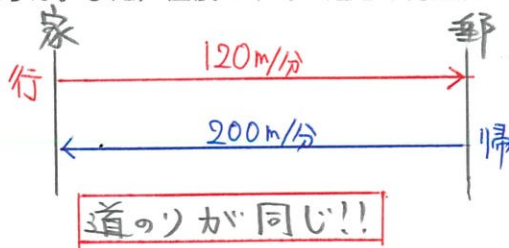 家 郵
行 120m/分
200m/分 帰
道のりが同じ!!